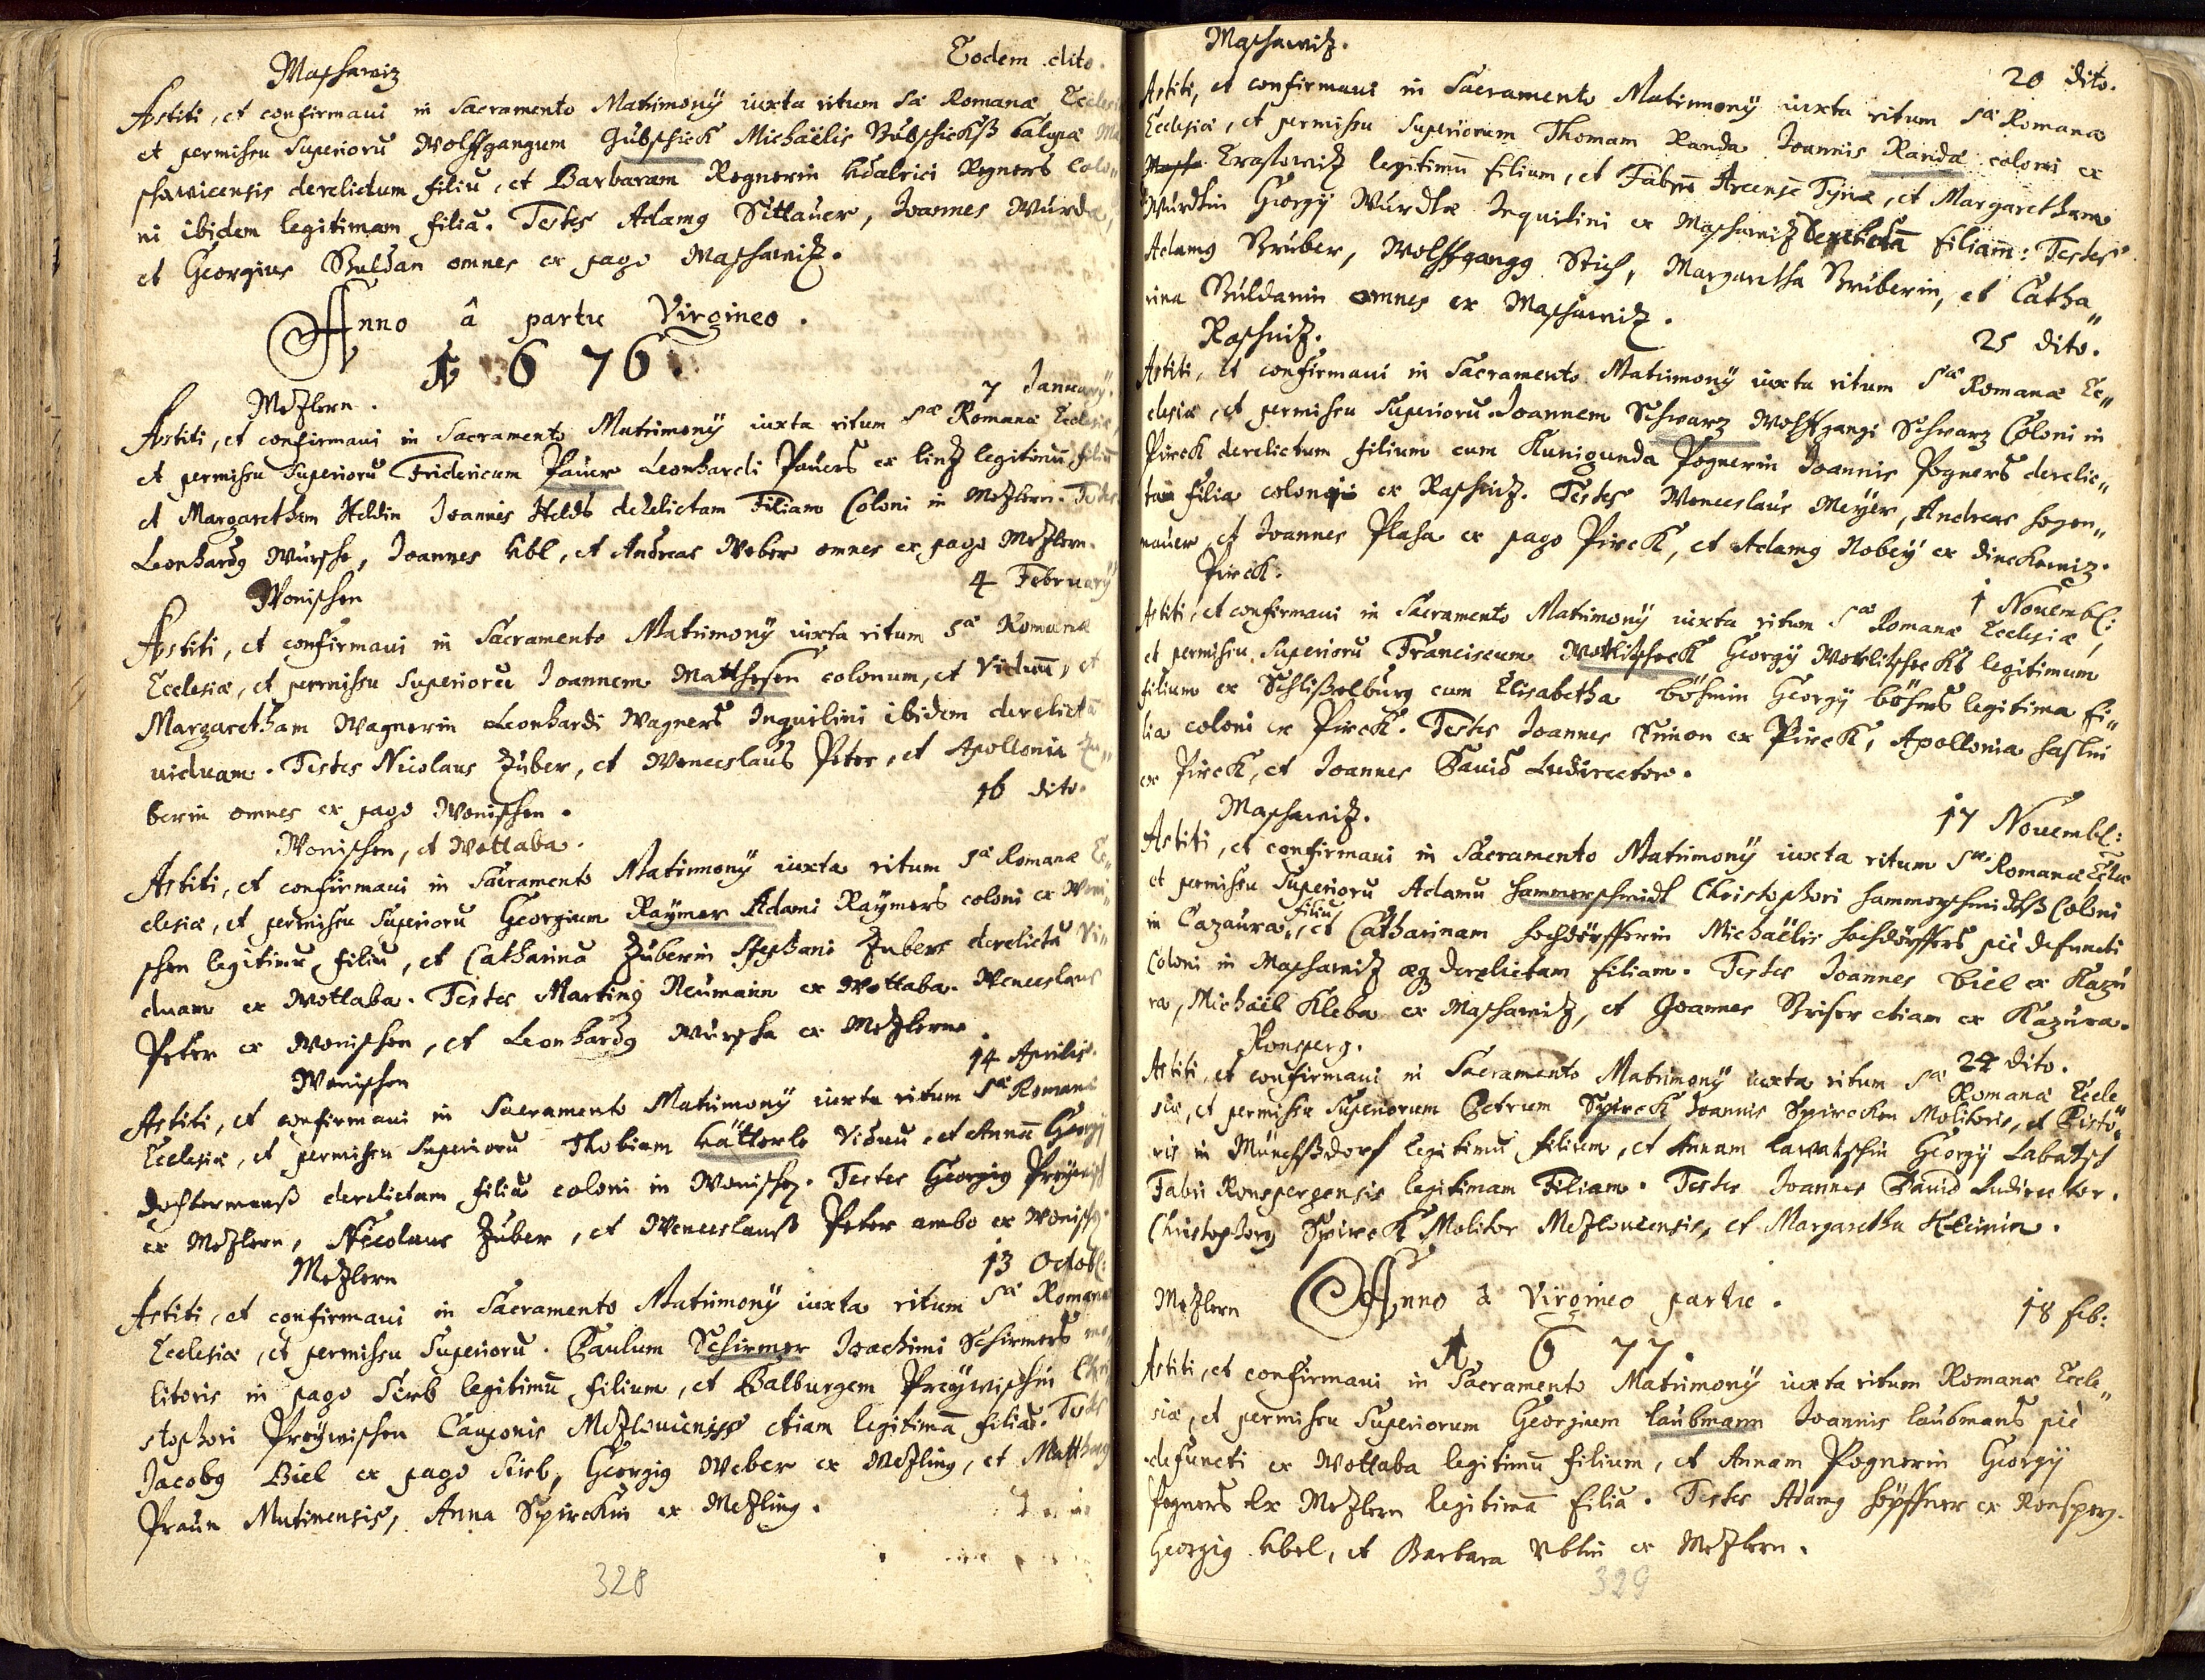 Maschawiz
Eodem dito.
Astiti, et confirmaui in Sacramento Matrimonÿ iuxta ritum Sæ Romanæ
et permissu Superiorũ Wolffgangum Gubschick Michaëlis
schawicensis derelictum filiũ, et Barbaram Regnerin Udalrici Regners Colo„
ni ibidem legitimam filiã. Testes Adamg Sittauer, Joannes Wurda,
et Georgius Buldan omnes ex pago Maschawitz.
Anno â partu Virgineo.
1676.
Metzlern.
7 Januarÿ.
Astiti, et confirmaui in Sacramento Matrimonÿ iuxta ritum Sæ Romanæ Ecclesiæ,
et permissu Superiorũ Fridericum Pauer Leonhardi Pauers ex Lintz legitimũ filiũ
et Margaretham Heldin Joannis Helds derelictam Filiam Coloni in Metzlern. Testes
Leonhardg Wurscha, Joannes Ubl, et Andreas Weber omnes ex pago Metzlern.
Wonischen
4 Februarÿ
Astiti, et confirmaui in Sacramento Matrimonÿ iuxta ritum Sæ Romanæ
Ecclesiæ, et permissu Superiorũ Joannem Matthesen colonum, et Viduũ, et
Margaretham Wagnerin Leonhardi Wagners Inquilini ibidem derelictã
uiduam. Testes Nicolaus Zuber, et Wenceslaus Peter, et Apollonia Zu„
berin omnes ex pago Wonischen.
16 dito.
Wonischen, et Wottaba.
Astiti, et confirmaui in Sacramento Matrimonÿ iuxta ritum Sæ Romanæ Ec„
clesiæ, et permissu Superiorũ Georgium Raÿmer Adami Raÿmers coloni ex Woni„
schen legitimũ filiũ, et Catharinã Zuberin Stephani Zubers derelictã Vi„
duam ex Wottaba. Testes Marting Neumann ex Wottaba. Wenceslaus
Peter ex Wonischen, et Leonhardg Wurscha ex Metzlern.
Wonischen
14 Aprilis.
Astiti, et confirmaui in Sacramento Matrimonÿ iuxta ritum Sæ Romanæ
Ecclesiæ, et permissu Superiorũ Thobiam Kätterle Viduũ, et Annã Georgÿ
Dochtermanß derelictam filiã coloni in Wonischen. Testes Georgig
ex Metzlern, Nicolaus Zuber, et Wenceslauß Peter ambo ex Wonischen.
Metzlern
13 Octobr:
Astiti, et confirmaui in Sacramento Matrimonÿ iuxta ritum Sæ Romanæ
Ecclesiæ, et permissu Superiorũ. Paulum Schirmer Joachimi Schirmers mo„
litoris in pago Sirb legitimũ filium, et Balburgem Preÿwischin Chri„
stophori Preÿwischen Cauponis Metzlouiensis etiam legitimã filiã. Testes
Jacobg Biel ex pago Sirb, Georgig Weber ex Metzling, et Matthæg
Praun Mutinensis, Anna Spirckin ex Metzling.
328
Maschawitz.
20 dito.
Astiti, et confirmaui in Sacramento Matrimonÿ iuxta ritum Sæ Romanæ
Ecclesiæ, et permissu Superiorum Thomam Randa Joannis Randæ coloni ex
Erastowitz legitimũ filium, et Fabrũ Arcensẽ Tynæ, et Margaretham
Wurdtin Georgÿ Wurdtæ Inquilini ex Maschawitz derelictã filiam: Testes
Adamg Bruber, Wolffgangg Stich, Margaretha Bruberin, et Catha„
rina Buldanin omnes ex Maschawitz.
Raschnitz.
25 dito.
Astiti, et confirmaui in Sacramento Matrimonÿ iuxta ritum Sæ Romanæ Ec„
clesiæ, et permissu Superiorũ Joannem Schwarz Wolffgangi Schwarz Coloni in
Pirck derelictum filium cum Kunigunda Pognerin Joannis Pogners derelic„
ta filia coloni ex Raschnitz. Testes Wenceslaus Meÿer, Andreas Hogen„
nauer, et Joannes Plaha ex pago Pirck, et Adamg Nobeÿ ex Dinckowitz.
Pirck.
1 Novembr:
Astiti, et confirmaui in Sacramento Matrimonÿ iuxta ritum Sæ Romanæ Ecclesiæ,
et permissu Superiorũ Franciscum Wotlitscheck Georgÿ Wotlitschecks legitimum
filium ex Schlißelburg cum Elisabetha Böhmin Georgÿ Böhms legitima fi„
lia coloni ex Pirck. Testes Joannes Simon ex Pirck, Apollonia Haslin
ex Pirck, et Joannes David Ludirector.
Maschawitz.
17 Novembr:
Astiti, et confirmaui in Sacramento Matrimonÿ iuxta ritum Sæ Romanæ Ecclæ
et permissu Superiorũ Adamũ Hammerschmidt Christophori Hammerschmidtß Coloni
in Cazaura filiũ, et Catharinam Hochdörfferin Michaëlis Hochdörffers piè defuncti
Coloni in Maschawitz derelictam filiam. Testes Joannes Biel ex Kazu
ra, Michaël Kleba ex Maschawitz, et Joannes Briser etiam ex Kazura.
Ronsperg.
24 dito.
Astiti, et confirmaui in Sacramento Matrimonÿ iuxta ritum Sæ Romanæ Eccle
siæ, et permissu Superiorum Petrum Spirck Joannis Spircken Molitoris, et Pisto„
ris in Münchßdorf legitimũ filium, et Annam Lawatschin Georgÿ Labatsch
Fabri Ronspergensis legitimam Filiam. Testes Joannes David Ludirector.
Christophorg Spirck Molitor Metzlouiensis, et Margaretha Kleinin.
Metzlern
Anno â Virgineo partu.
18 Feb:
1677.
Astiti, et confirmaui in Sacramento Matrimonÿ iuxta ritum Romanæ Eccle„
siæ, et permissu Superiorum Georgium Laubmann Joannis Laubmans piè
defuncti ex Wottaba legitimũ filium, et Annam Pognerin Georgÿ
Pogners Ex Metzlern legitimã filiã. Testes Adamg Höpffner ex Ronsperg.
Georgig Ubel, et Barbara Ublin ex Metzlern.
329